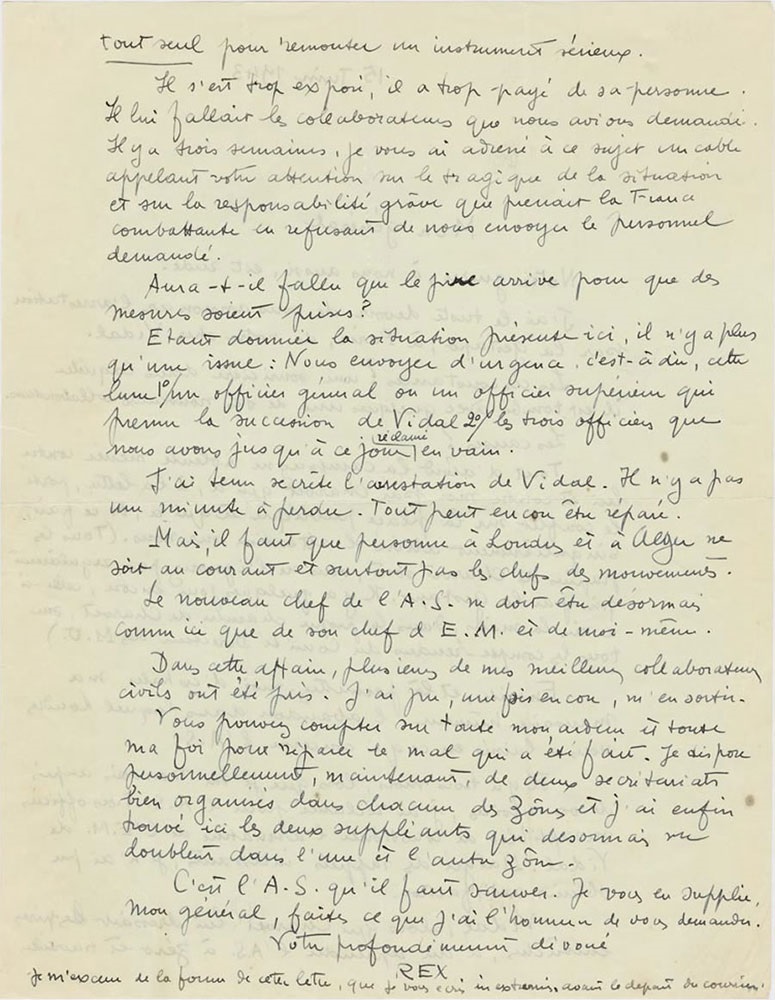 tout seul pour remonter un instrument sérieux.
Il s'est trop exposé, il a trop payé de sa personne.
Il lui fallait les collaborateurs que nous avions demandé.
Il y a trois semaines, je vous ai adressé à ce sujet un cable
appelant votre attention sur le tragique de la situation
et sur la responsabilité grâve que prenait la France
combattante en refusant de nous envoyer le personnel
demandé.
Aura-t-il fallu que le pire arrive pour que des
mesures soient prises?
Etant donnée la situation présente ici, il n'y a plus
qu'une issue : Nous envoyer d'urgence, c'est-à-dire, cette
lune 1°/ un officier général ou un officier supérieur qui
prenne la succession de Vidal 2°/ les trois officiers que
nous avons jusqu'à ce jour réclamé en vain.
J'ai tenu secrète l'arrestation de Vidal. Il n'y a pas
une minute à perdre. Tout peut encore être réparé.
Mais, il faut que personne à Londres et à Alger ne
soit au courant et surtout pas les chefs des mouvements.
Le nouveau chef de l'A.S. ne doit être désormais
connu ici que de son chef d'E.M. et de moi-même.
Dans cette affaire, plusieurs de mes meilleurs collaborateurs
civils ont été pris. J'ai pu, une fois encore, m'en sortir.
Vous pouvez compter sur toute mon ardeur et toute
ma foi pour réparer le mal qui a été fait. Je dispose
personnellement, maintenant, de deux secrétariats
bien organisés dans chacune des zônes et j'ai enfin
trouvé ici les deux suppléants qui desormais me
doublent dans l'une et l'autre zône.
C'est l'A.S. qu'il faut sauver. Je vous en supplie,
mon général, faites ce que j'ai l'honneur de vous demander.
Votre profondément dévoué
REX
Je m'excuse de la forme de cette lettre, que je vous écris in extremis, avant le départ du courrier.